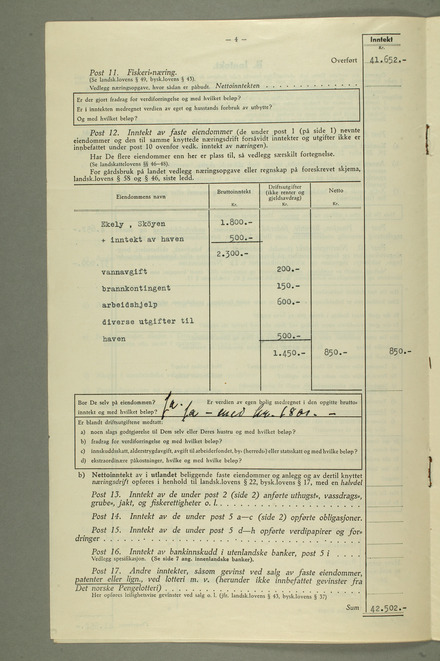 — 4 —
Inntekt
Kr.
Overført 41.652.-
Post 11. Fiskeri-næring.
(Se landsk.lovens § 49, bysk.lovens § 43).
Vedlegg næringsopgave, hvor sådan er påbudt. Nettoinntekten
Er det gjort fradrag for verdiforringelse og med hvilket beløp?
Er i inntekten medregnet verdien av eget og husstands forbruk av utbytte?
Og med hvilket beløp?
Post 12. Inntekt av faste eiendommer (de under post 1 (på side 1) nevnte
eiendommer og den til samme knyttede næringsdrift forsåvidt inntekter og utgifter ikke er
innbefattet under post 10 ovenfor vedk. inntekt av næringen).
Har De flere eiendommer enn her er plass til, så vedlegg særskilt fortegnelse.
(Se landskattelovens §§ 46—48).
For gårdsbruk på landet vedlegg næringsopgave eller regnskap på foreskrevet skjema,
landsk.lovens § 58 og § 46, siste ledd.
Eiendommens navn Bruttoinntekt Kr. Driftsutgifter (ikke renter og gjeldsavdrag) Kr. Netto Kr.
Ekely , Sköyen 1.800.-
+ inntekt av haven 500.-
2.300.-
vannavgift 200.-
brannkontingent 150.-
arbeidshjelp 600.-
diverse utgifter til
haven 500.-
1.450.- 850.- 850.-
Bor De selv på eiendommen? Ja. Er verdien av egen bolig medregnet i den opgitte brutto-
inntekt og med hvilket beløp? Ja - med kr.
Er blandt driftsutgiftene medtatt:
a) noen slags godtgjørelse til Dem selv eller Deres hustru og med hvilket beløp?
b) fradrag for verdiforringelse og med hvilket beløp?
c) inntekt
d) ekstraordinære påkostninger, hvilke og med hvilke beløp?
b) Nettoinntekt av i utlandet beliggende faste eiendommer og anlegg og av dertil knyttet
næringsdrift opføres i henhold til landsk.lovens § 22, bysk.lovens § 17, med en halvdel
Post 13. Inntekt av de under post 2 (side 2) anførte uthugst-, vassdrags-,
grube-, jakt, og fiskerettigheter o. l.
Post 14. Inntekt av de under post 5 a—c (side 2) opførte obligasjoner.
Post 15. Inntekt av de under post 5 d—h opførte verdipapirer og for-
dringer
Post 16. Inntekt av bankinnskudd i utenlandske banker, post 5 i
Vedlegg spesifikasjon. (Se side 7 ang. innenlandske banker).
Post 17. Andre inntekter, såsom gevinst ved salg av faste eiendommer,
patenter eller lign., ved lotteri m. v. (herunder ikke innbefattet gevinster fra
Det norske Pengelotteri)
Her opføres leilighetsvise gevinster ved salg o. l. (jfr. landsk.lovens § 43, bysk.lovens § 37)
Sum 42.502.-